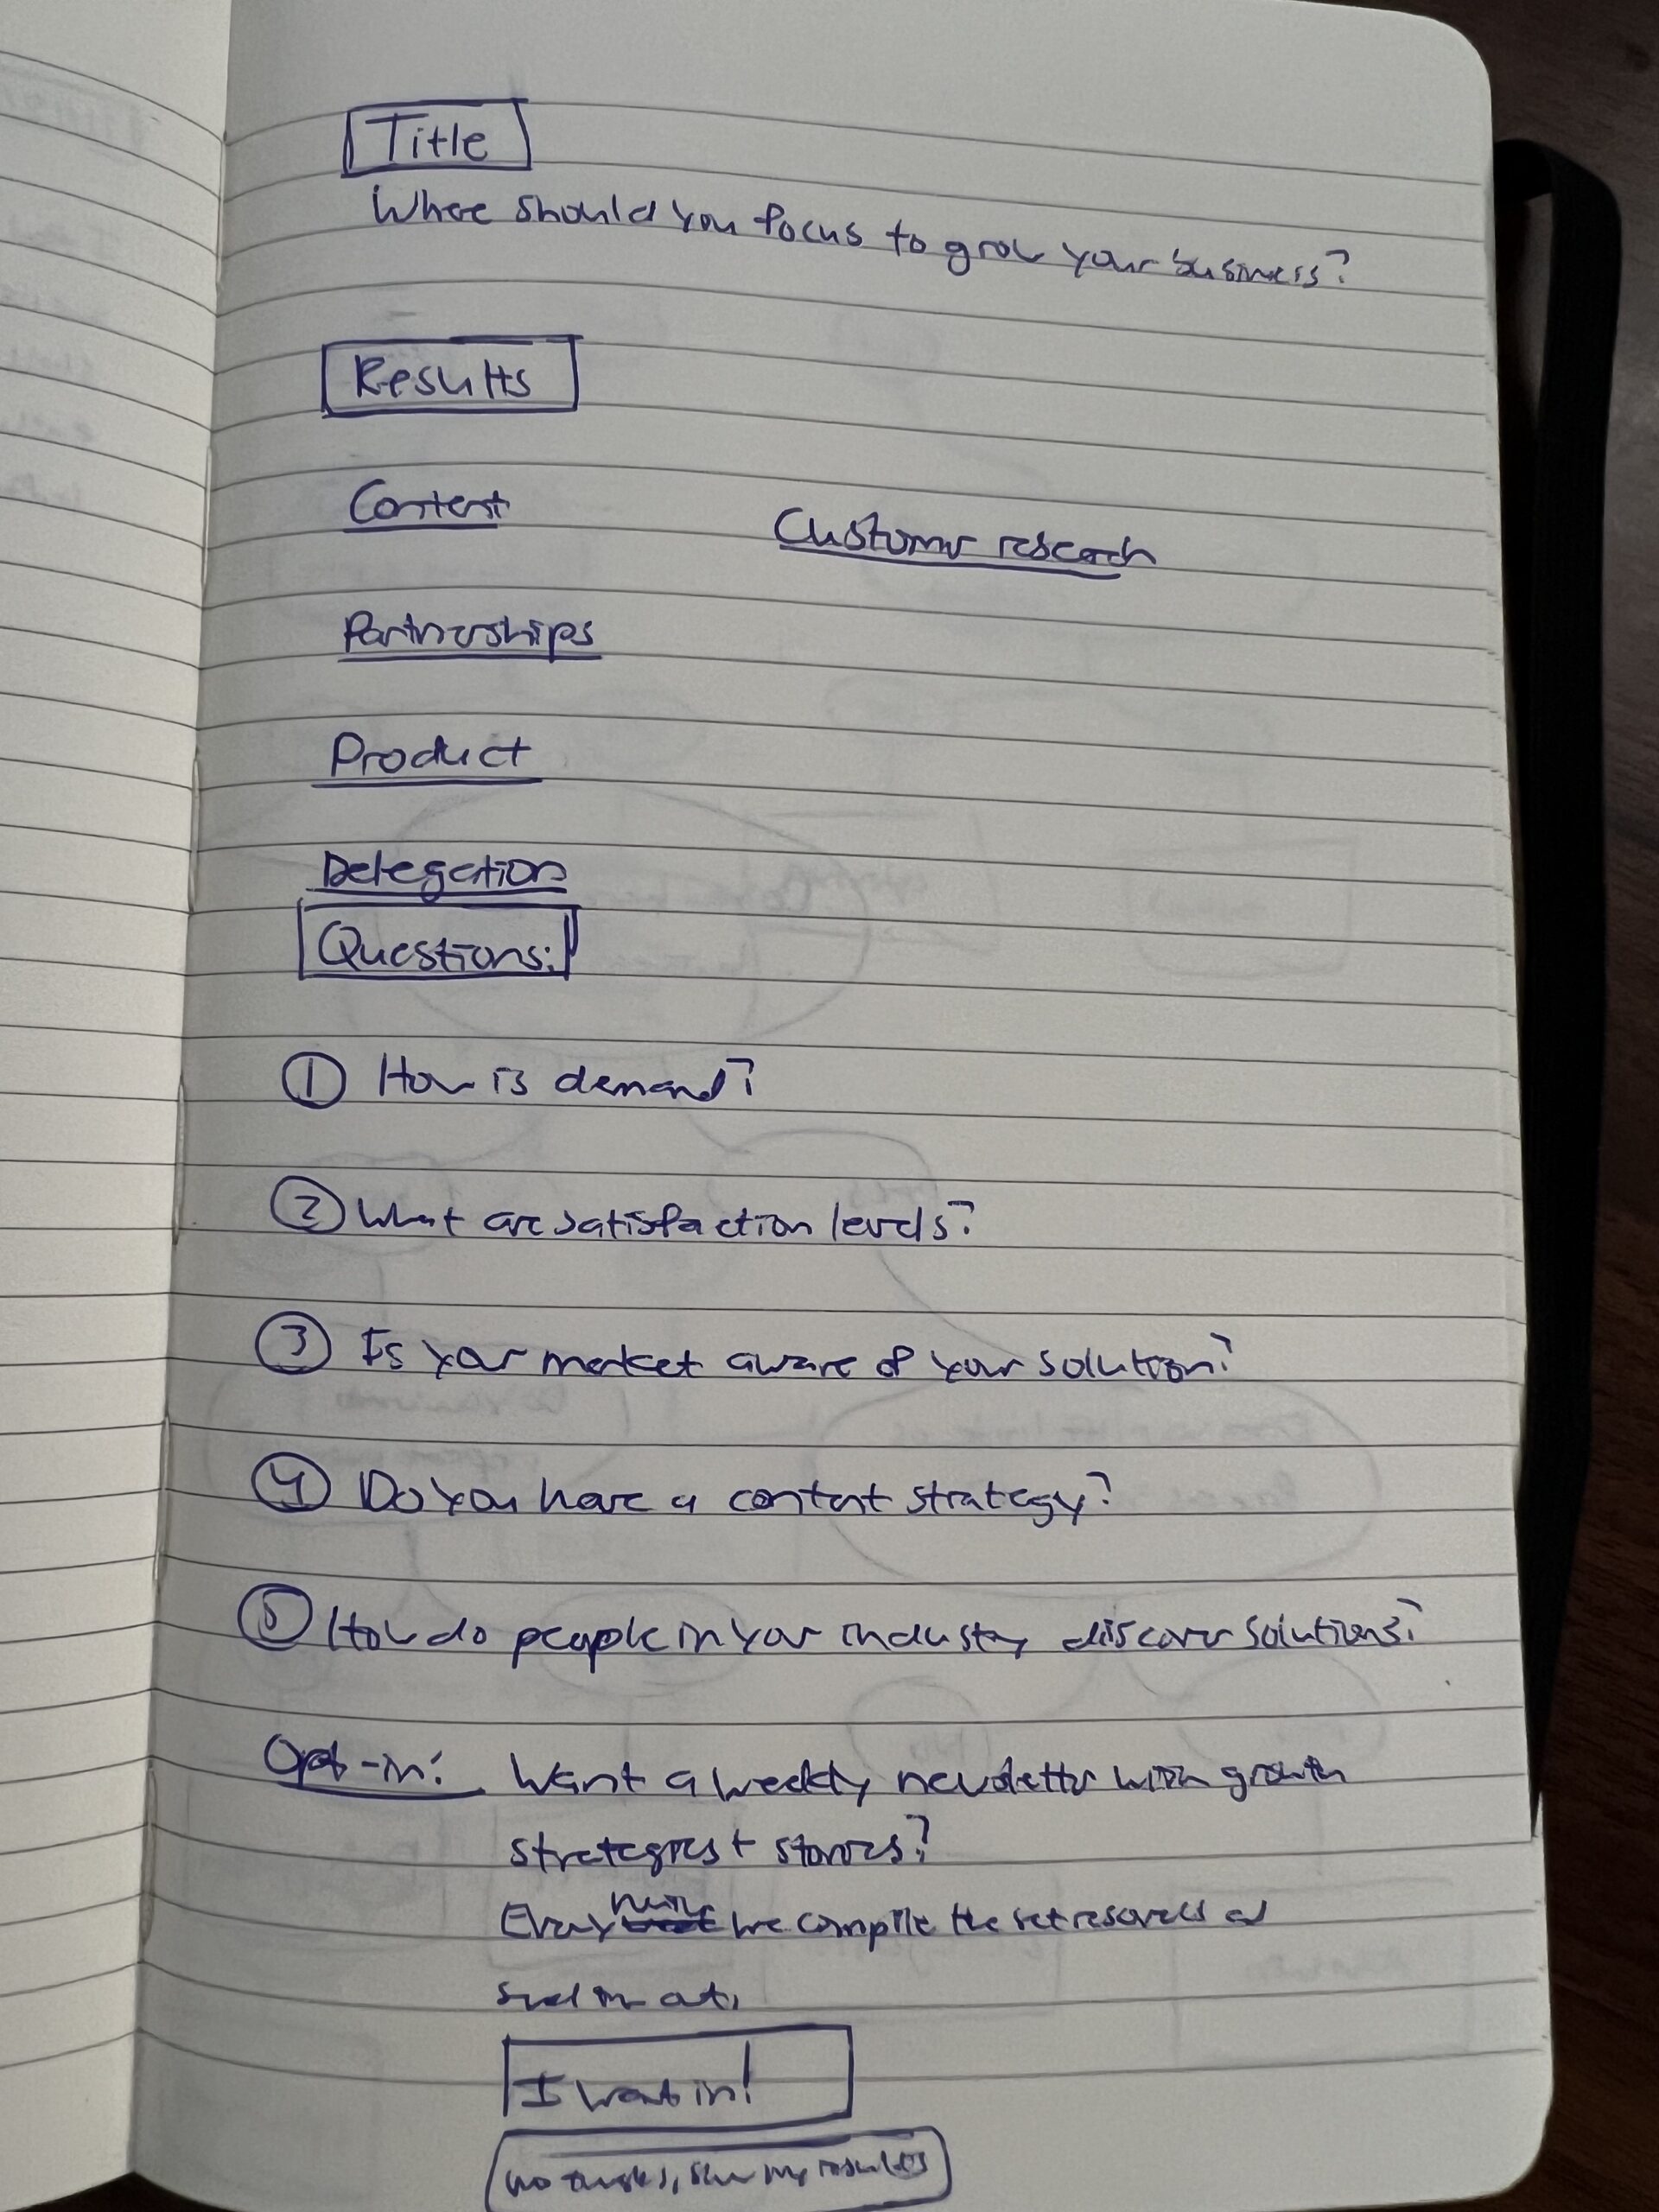 Title
Where should you focus to grow your business?
Results
Content
Customer research
Partnerships
Product
Delegation
Questions:
① How is demand?
② What are satisfaction levels?
③ Is your market aware of your solution?
④ Do you have a content strategy?
⑤ How do people in your industry discover solutions?
Opt-in: Want a weekly newsletter with growth
strategies + stories?
Every we compile the
out.
I want in!
no thanks, show my results